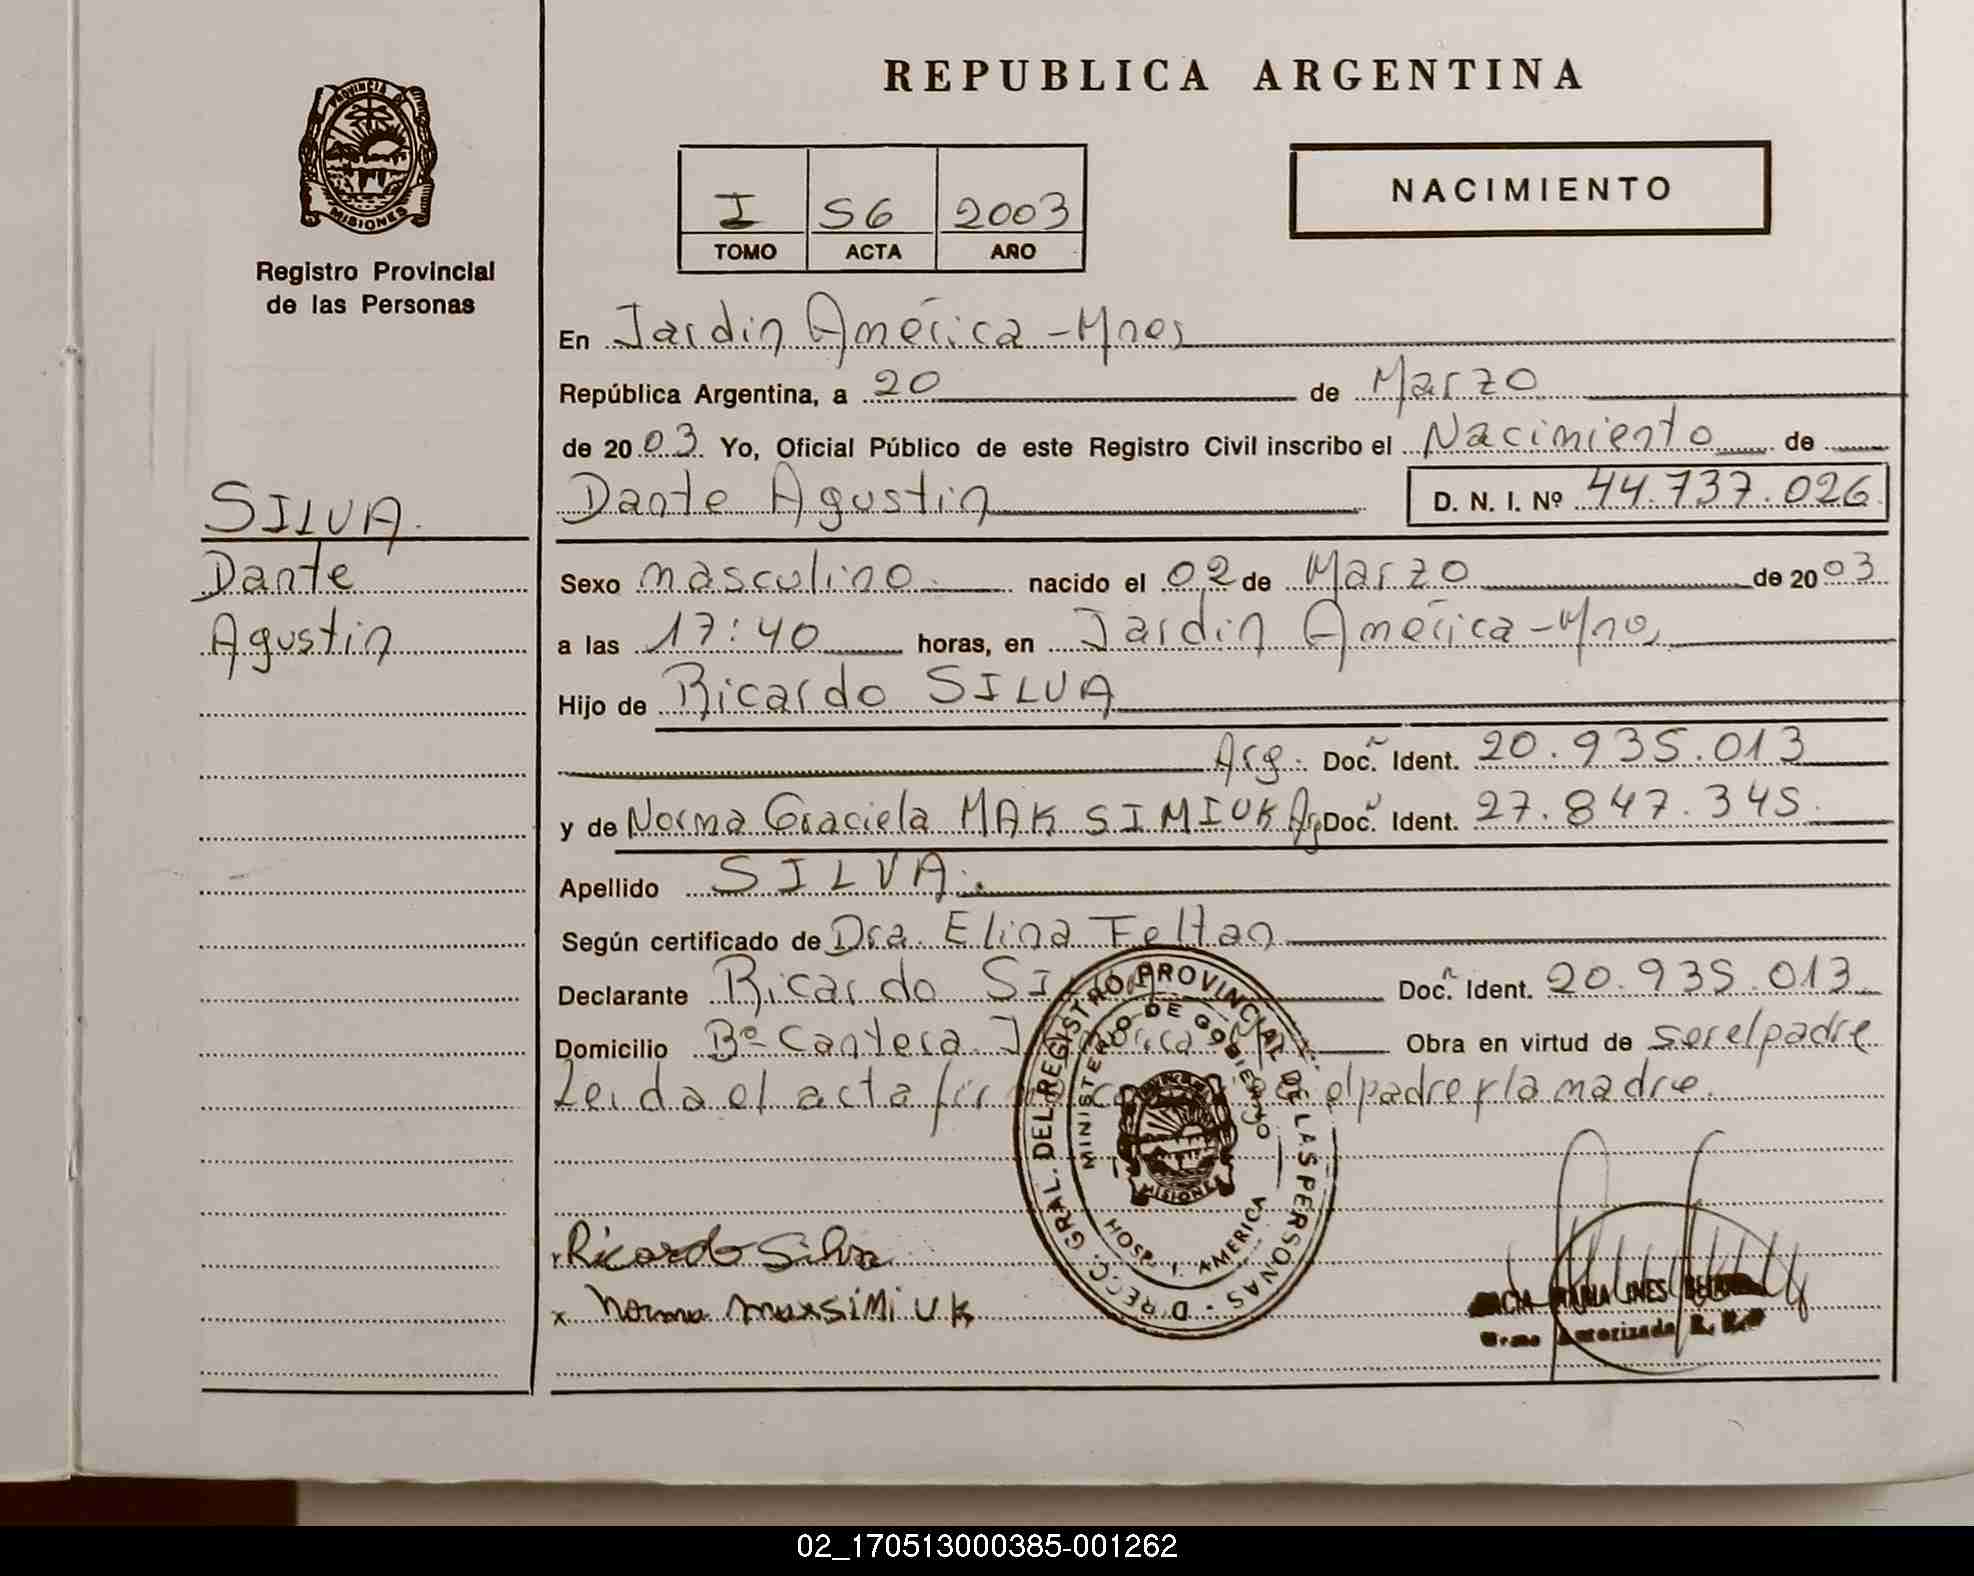 REPUBLICA ARGENTINA
PROVINCIA DE
MISIONES
Registro Provincial
de las Personas
I 56 2003
TOMO ACTA AÑO
NACIMIENTO
En Jardin América - Mnes
República Argentina, a 20 de Marzo
de 2003 Yo, Oficial Público de este Registro Civil inscribo el Nacimiento de
SILVA.
Dante Agustin D. N. I. Nº 44.737.026
Dante
Sexo masculino. nacido el 02 de Marzo de 2003
Agustin
a las 17:40 horas, en Jardin América - Mnes
Hijo de Ricardo SILVA
Arg. Doc. Ident. 20.935.013
y de Norma Graciela MAKSIMIUK Arg Doc. Ident. 27.847.345.
Apellido SILVA.
Según certificado de Dra. Elina Feltan
Declarante Ricardo Doc. Ident. 20.935.013
Domicilio Bº Cantera Obra en virtud de ser el padre
Leida el acta el padre y la madre.
DIRECC. GRAL. DEL REGISTRO PROVINCIAL DE LAS PERSONAS
MINISTERIO DE GOBIERNO
MISIONES
HOSP. J. AMERICA
Ricardo Silva
x Norma maxsimiuk
INES
Autorizada
02_170513000385-001262